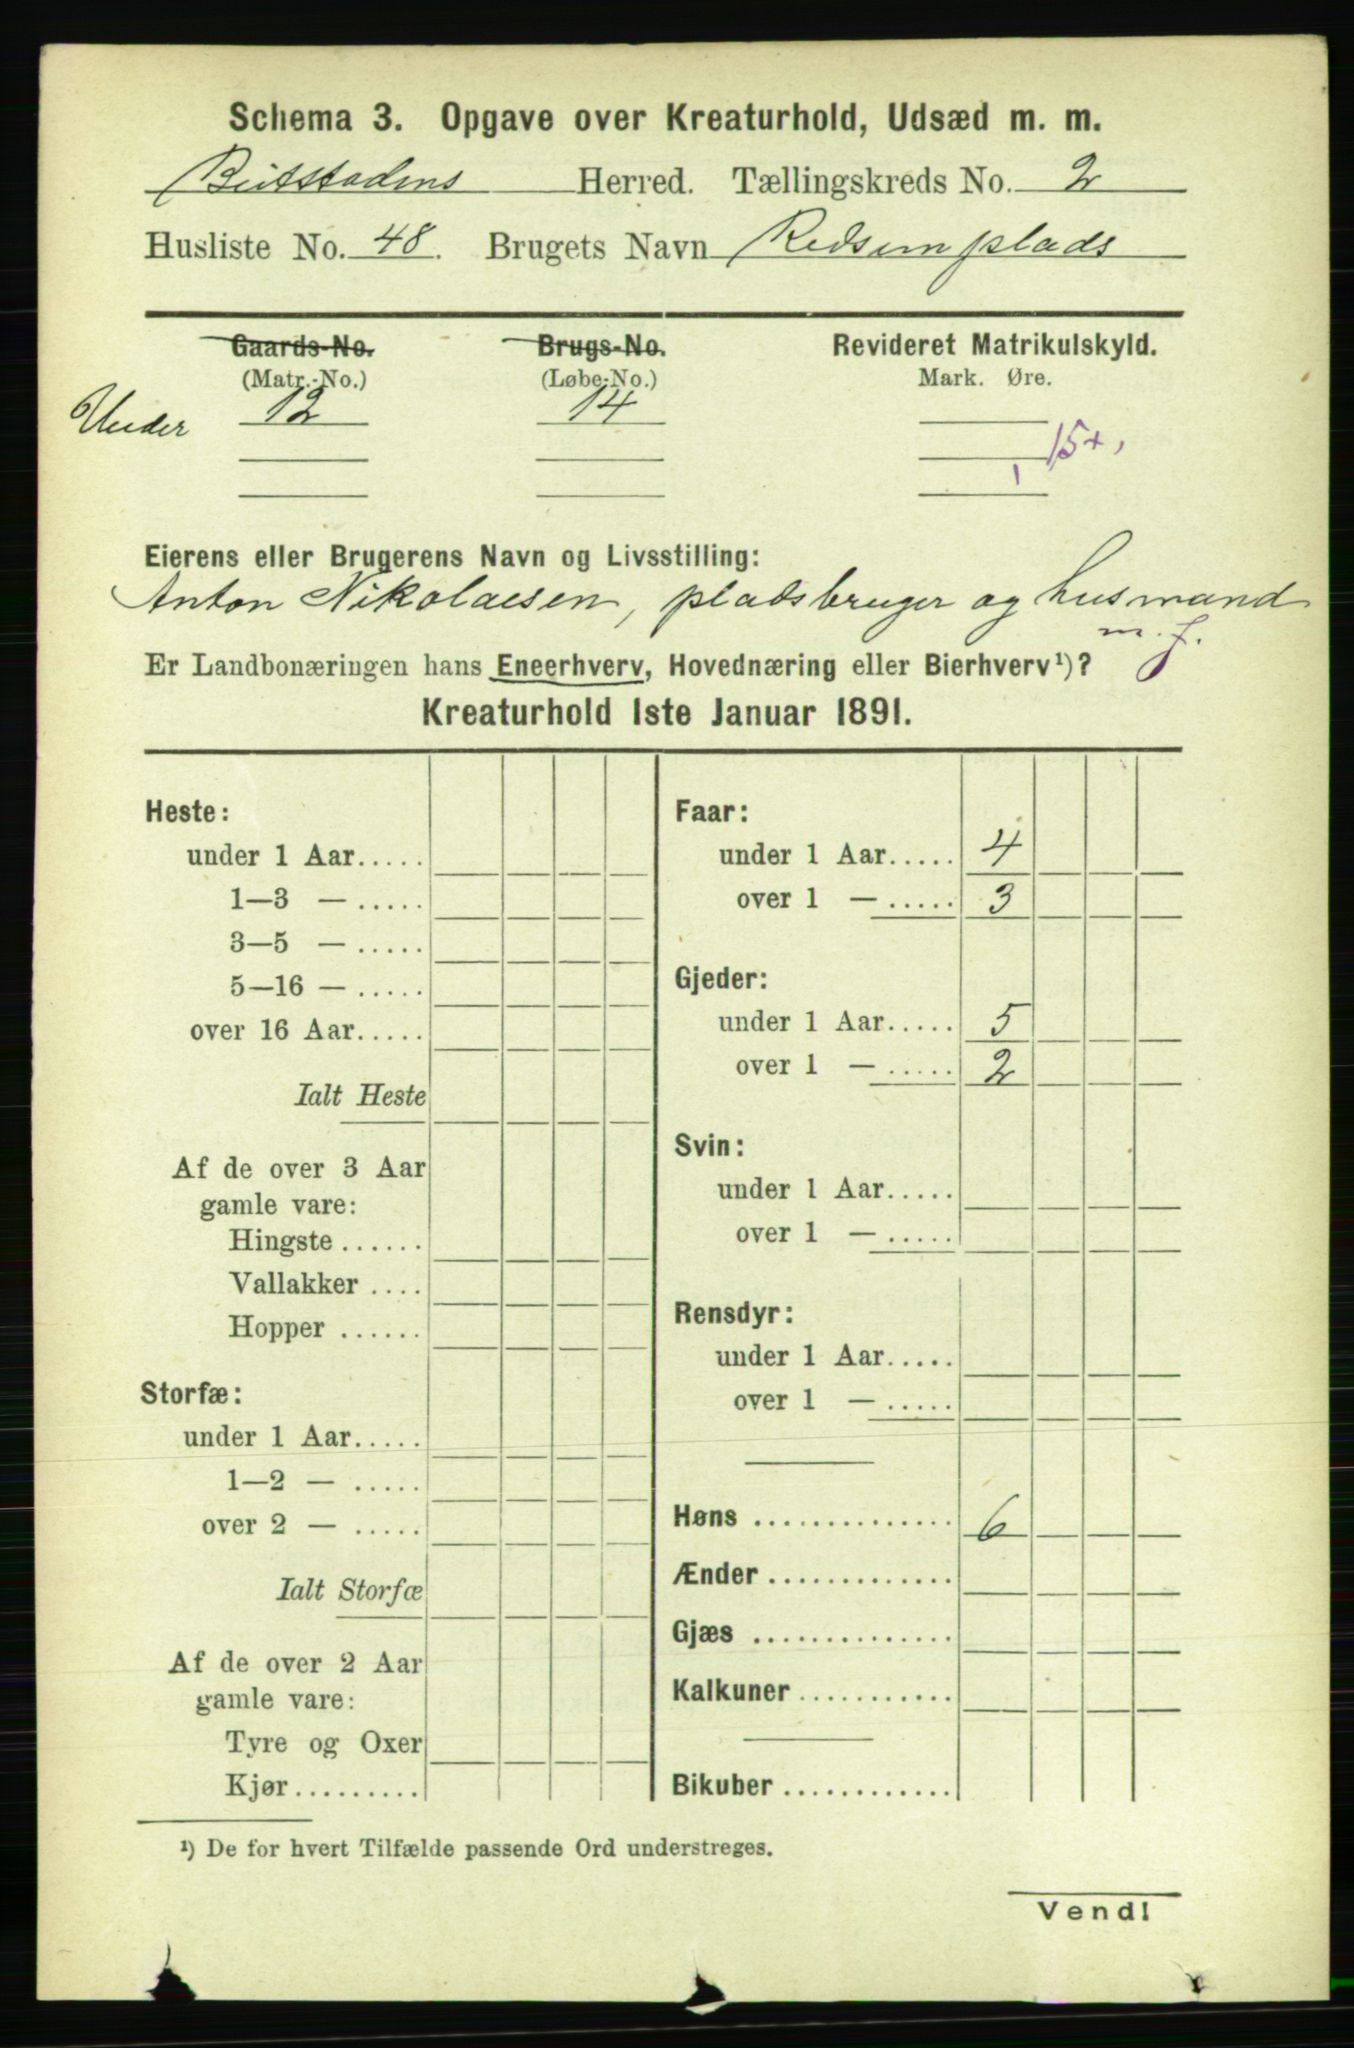 Schema 3. Opgave over Kreaturhold, Udsæd m. m.
Beitstadens Herred. Tællingskreds No. 2
Husliste No. 48. Brugets Navn Redsemplads
Gaards-No. Brugs-No. Revideret Matrikulskyld.
(Matr.-No.) (Løbe-No.) Mark. Øre.
Under 12 14
15+,
Eierens eller Brugerens Navn og Livsstilling:
Anton Nikolaisen, pladsbruger og husmand
m. J.
Er Landbonæringen hans Eneerhverv, Hovednæring eller Bierhverv¹)?
Kreaturhold 1ste Januar 1891.
Heste:
under 1 Aar.....
1—3 — .....
3—5 — .....
5—16 — .....
over 16 Aar.....
Ialt Heste
Af de over 3 Aar
gamle vare:
Hingste ......
Vallakker ....
Hopper ......
Storfæ:
under 1 Aar.....
1—2 — .....
over 2 — .....
Ialt Storfæ
Af de over 2 Aar
gamle vare:
Tyre og Oxer
Kjør.........
Faar:
under 1 Aar..... 4
over 1 — ..... 3
Gjeder:
under 1 Aar..... 5
over 1 — ..... 2
Svin:
under 1 Aar.....
over 1 — .....
Rensdyr:
under 1 Aar.....
over 1 — .....
Høns .............. 6
Ænder .............
Gjæs ..............
Kalkuner ...........
Bikuber ............
¹) De for hvert Tilfælde passende Ord understreges.
Vend!